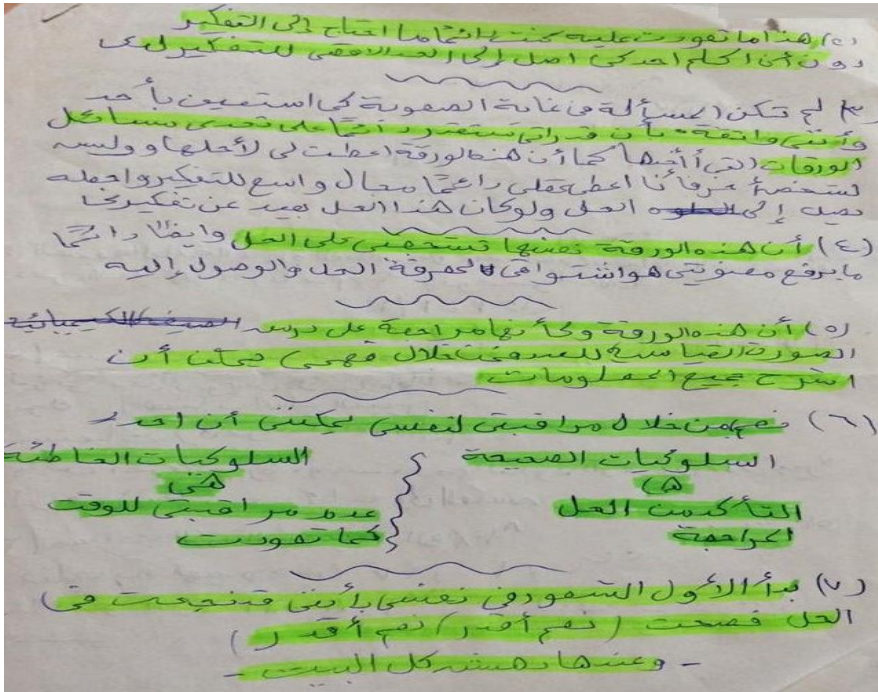 (٢) هذا ما تعودت عليه كنت دائمًا ما احتاج إلى التفكير
دون أن اكلم احد كي اصل إلى الحد الاقصى للتفكير لدى
٣) لم تكن المسألة في غاية الصعوبة كي استعين بأحد
وأنني واثقة بأن قدراتي ستقدر دائمًا على تحدى مسائل
الورقات التي أأخذها كما أن هذه الورقة اعطت لى لأحلها وليس
لشخص أعرفه أنا اعطى عقلي دائمًا مجال واسع للتفكير واجعله
يصل إلى الحل ولو كان هذا الحل بعيد عن تفكيري
(٤) أن هذه الورقة نفسها تشجعني على الحل وايضًا دائمًا
ما يرفع معنويتي هو اشتواقي لمعرفة الحل والوصول إليه
(٥) أن هذه الورقة وكأنها مراجعة على درس الصيغة الكيميائية
الصورة القياسية للعدد فمن خلال فهمي يمكن أن
اشرح جميع المعلومات
(٦) نعم من خلال مراقبتي لنفسي يمكنني أن احدد
السلوكيات الصحيحة السلوكيات الخاطئة
هي هي
التأكد من الحل عدم مراقبتي للوقت
المراجعة كما تعودت
(٧) بدأ الأول الشعور في نفسي بأنني قد نجحت في
الحل فصحت (نعم أقدر) نعم أقدر)
- وعندها دهش كل البيت -